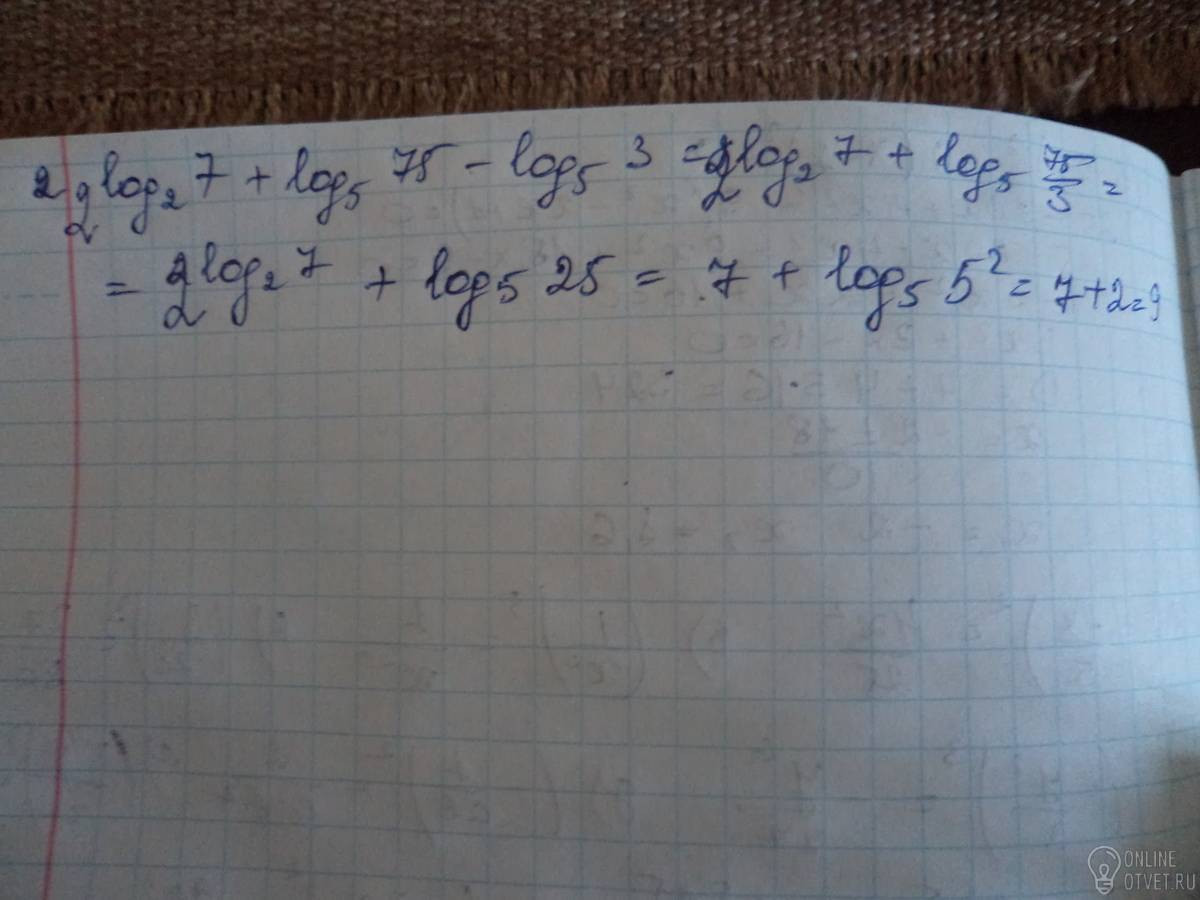 2 2^{log_2 7} + log_5 75 - log_5 3 = 2^{log_2 7} + log_5 \frac{75}{3} =
= 2^{log_2 7} + log_5 25 = 7 + log_5 5^2 = 7+2=9
ONLINE
OTVET.RU